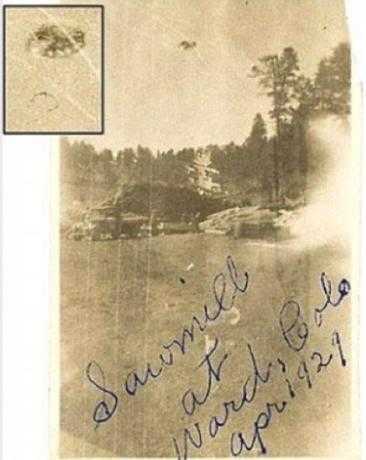 Sawmill
at
Ward, Colo
apr 1929